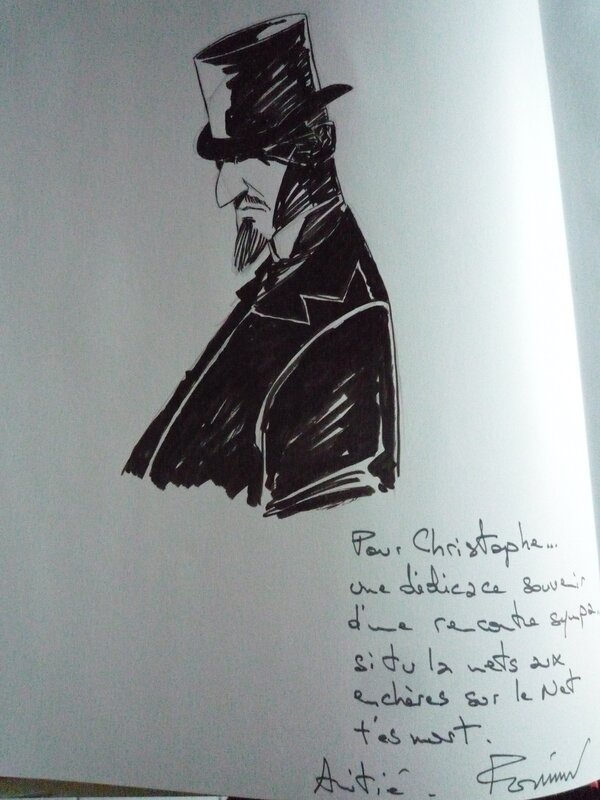 Pour Christophe...
une dédicace souvenir
d'une rencontre sympa.
si tu la mets aux
enchères sur le Net
t'es mort.